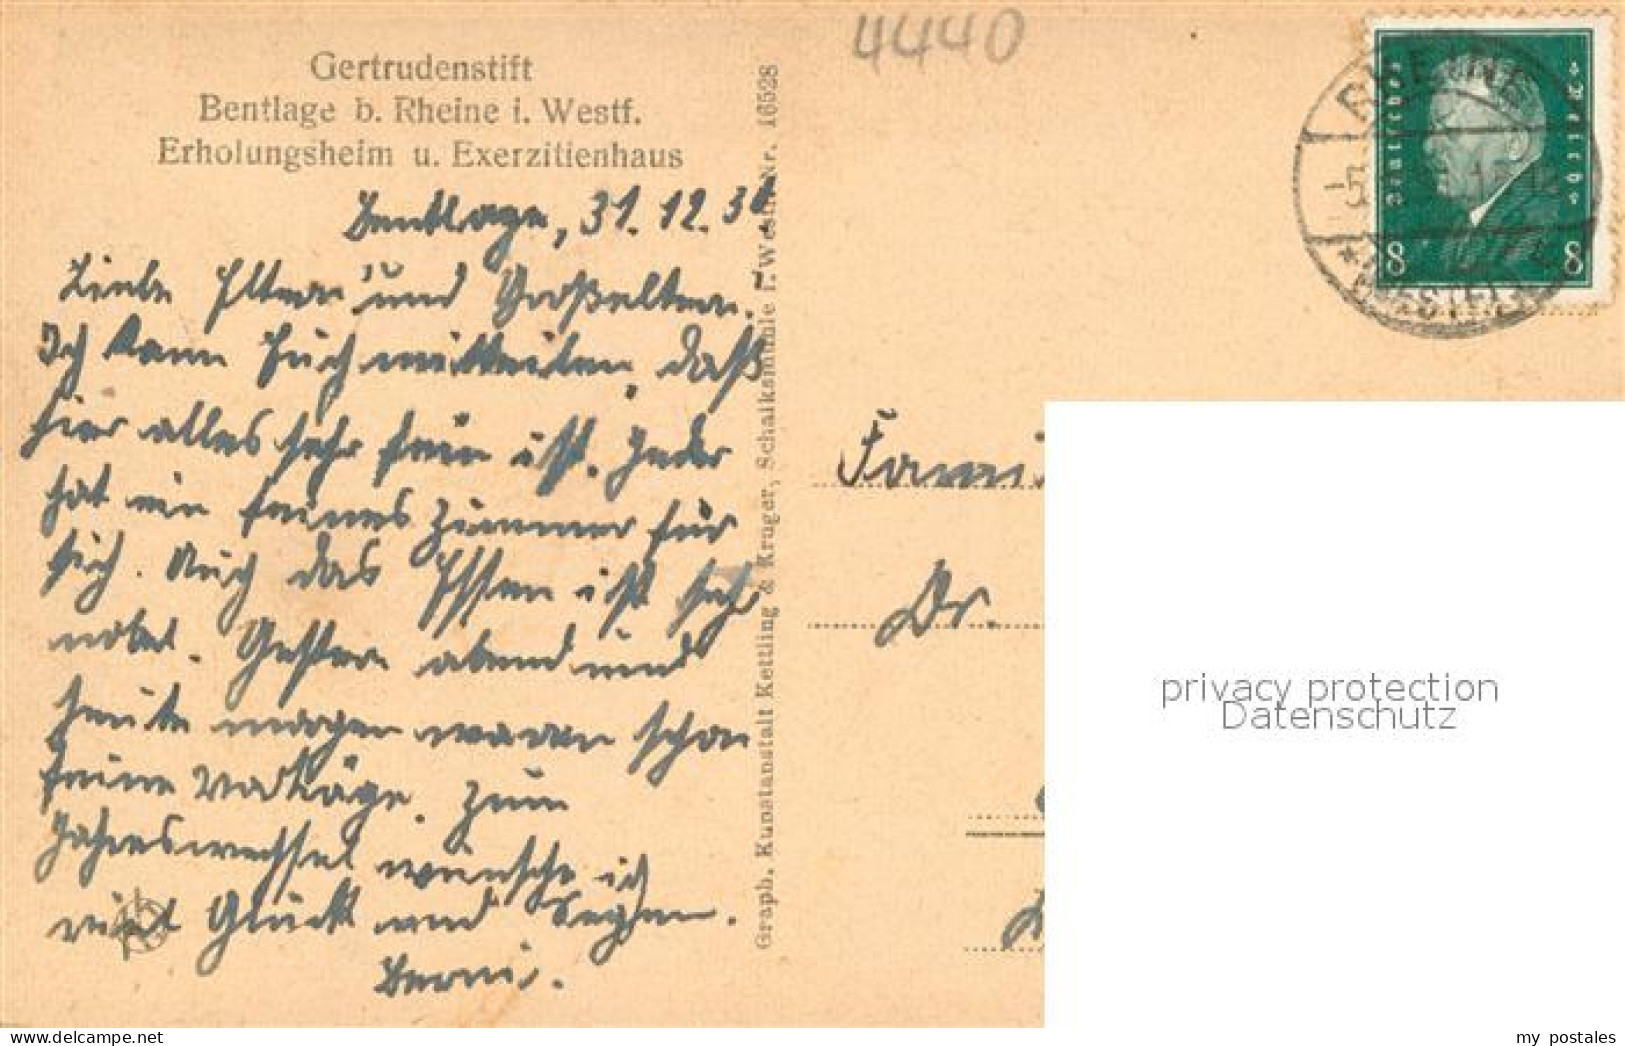 4440
Gertrudenstift
Bentlage b. Rheine i. Westf.
Erholungsheim u. Exerzitienhaus
Bentlage, 31.12.30
Liebe Eltern und Großeltern!
Ich kann Euch mitteilen, daß
hier alles sehr fein ist. Jeder
hat ein feines Zimmer für
sich. Auch das Essen ist sehr
nobel. Gestern abend und
heute morgen waren schon
feine Vorträge. Zum
Jahreswechsel wünsche ich
viel Glück und Segen.
Berni.
Graph. Kunstanstalt Kettling & Krüger, Schalksmühle i. Westf. Nr. 16528
RHEINE
(WESTF)
Deutsches Reich
8 8
Fami
Dr.
privacy protection
Datenschutz
my postales